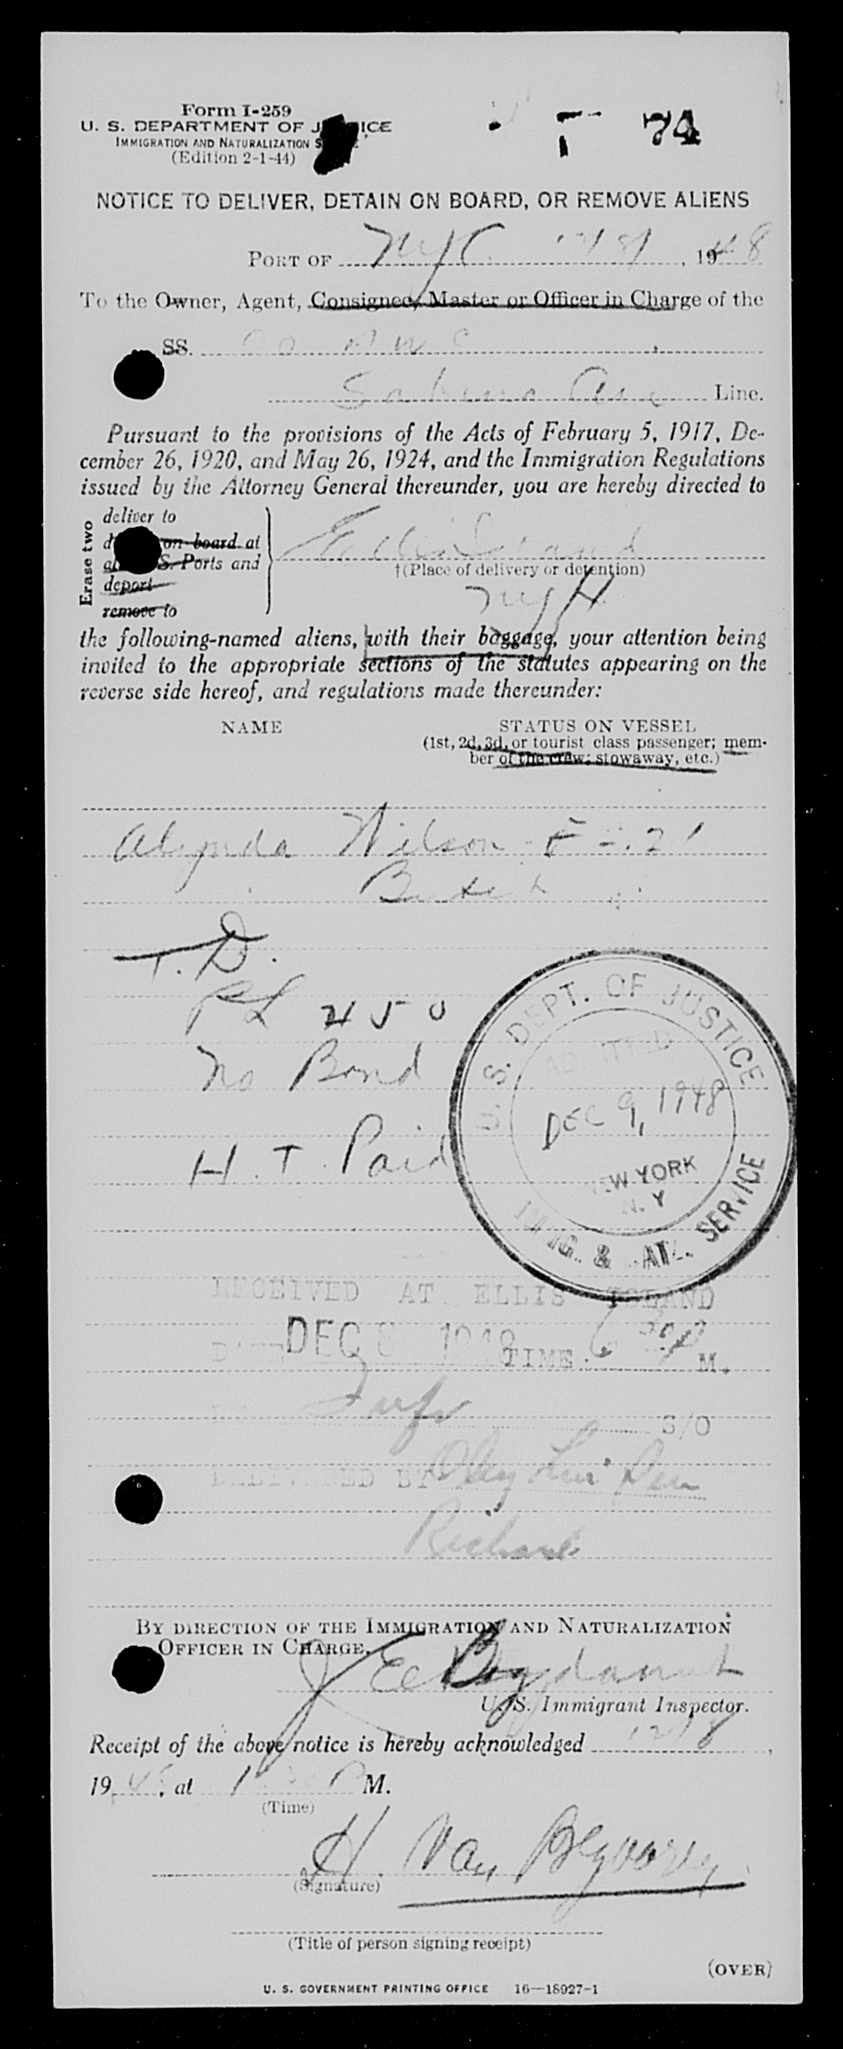 Form I-259
U. S. DEPARTMENT OF JUSTICE
IMMIGRATION AND NATURALIZATION SERVICE
(Edition 2-1-44)
74
NOTICE TO DELIVER, DETAIN ON BOARD, OR REMOVE ALIENS
PORT OF NYC 12/8/, 1948
To the Owner, Agent, Consignee, Master or Officer in Charge of the
SS.
Sabena Line.
Pursuant to the provisions of the Acts of February 5, 1917, De-
cember 26, 1920, and May 26, 1924, and the Immigration Regulations
issued by the Attorney General thereunder, you are hereby directed to
Erase two
deliver to
on board at
U.S. Ports and
deport
remove to
Ellis Island
†(Place of delivery or detention)
NYH
the following-named aliens, with their baggage, your attention being
invited to the appropriate sections of the statutes appearing on the
reverse side hereof, and regulations made thereunder:
NAME STATUS ON VESSEL
(1st, 2d, 3d, or tourist class passenger; mem-
ber of the crew; stowaway, etc.)
Wilson - F - 21
T. D.
PL 450
No Bond
H. T. Paid
U. S. DEPT. OF JUSTICE
ADMITTED
DEC 9, 1948
NEW YORK
N. Y
IMIG. & NATZ. SERVICE
RECEIVED AT ELLIS ISLAND
DATE DEC 8 1948 TIME 6 30 P M.
S/O
DELIVERED BY
Richard
BY DIRECTION OF THE IMMIGRATION AND NATURALIZATION
OFFICER IN CHARGE.
U. S. Immigrant Inspector.
Receipt of the above notice is hereby acknowledged 12/8,
1948, at 1 30 P M.
(Time)
H. Van
(Signature)
(Title of person signing receipt)
(OVER)
U. S. GOVERNMENT PRINTING OFFICE 16—18927-1